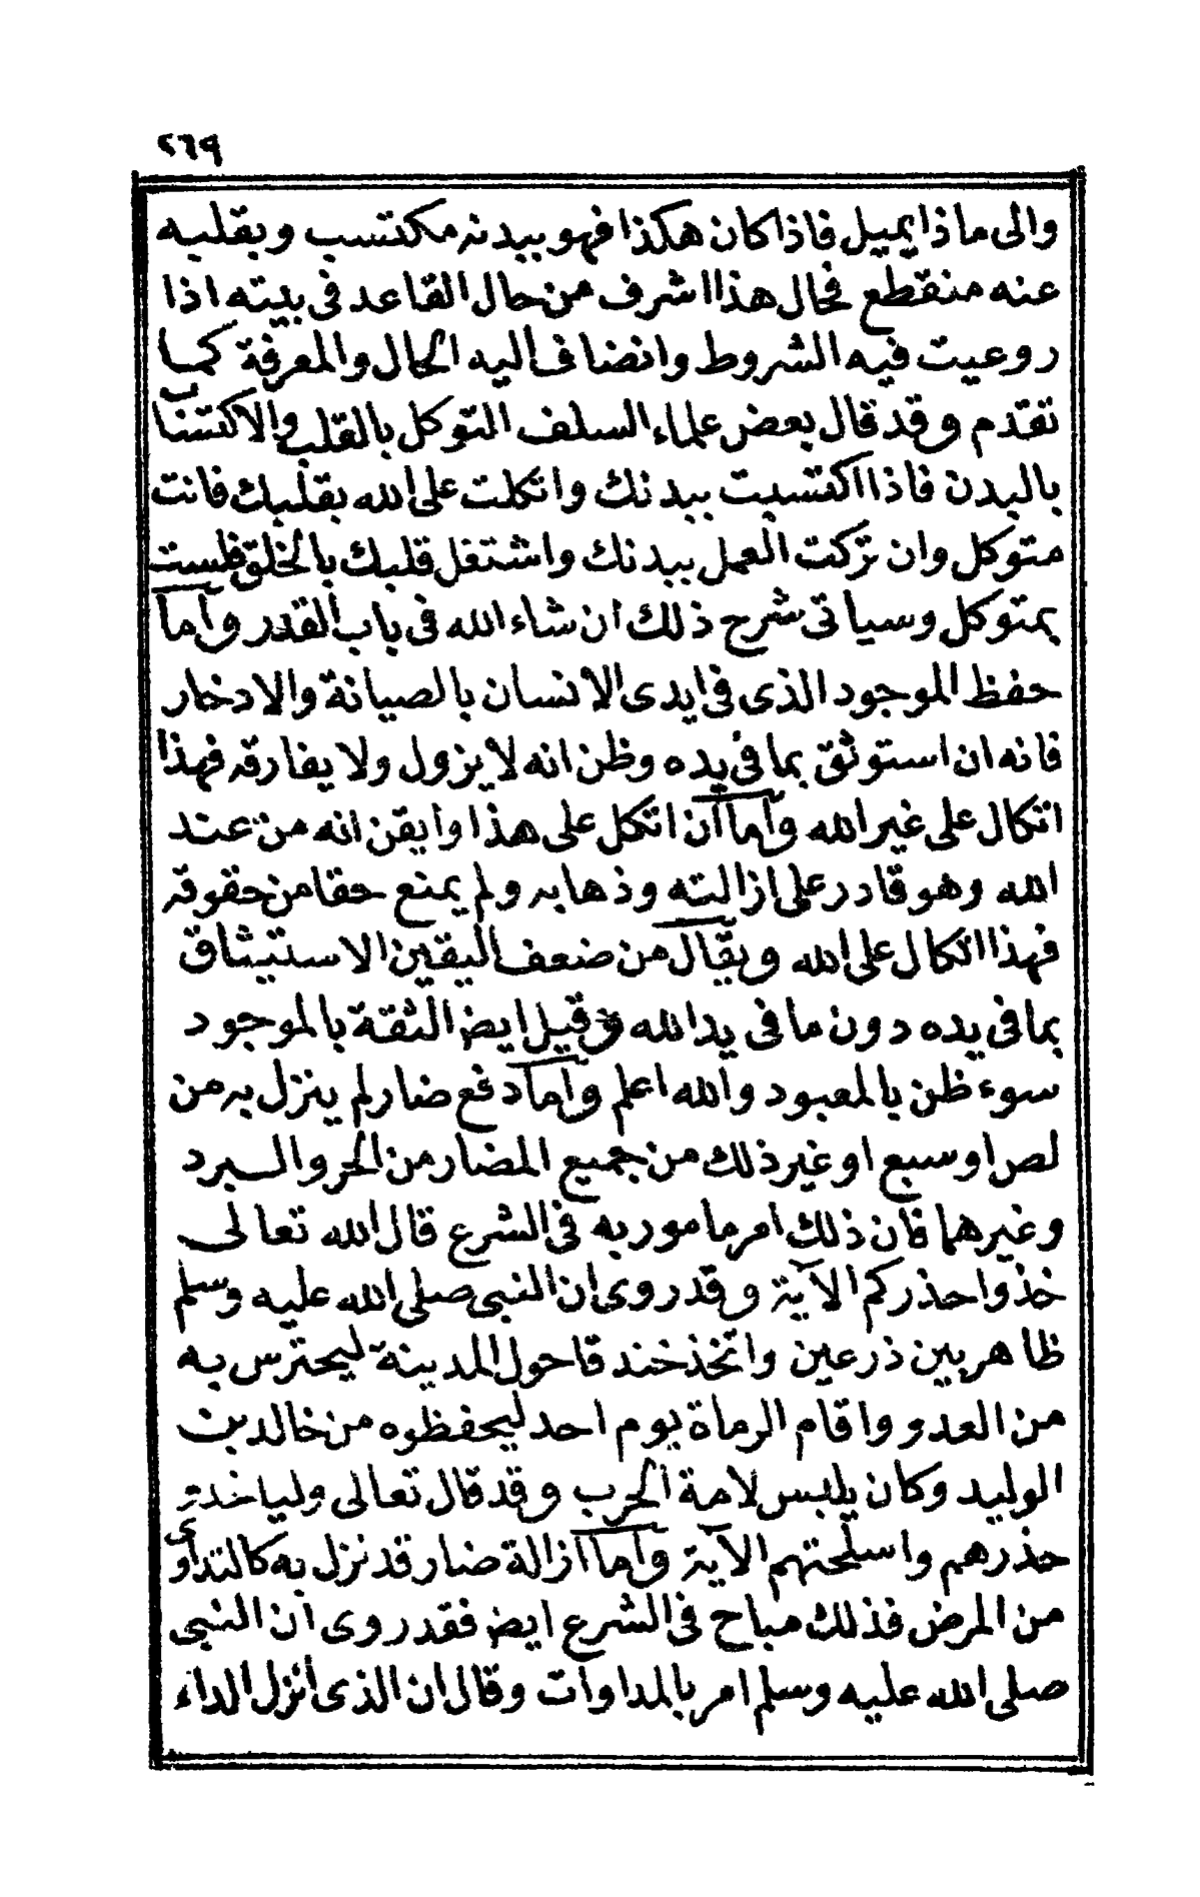 ٢٦٩
والى ماذا يميل فاذا كان هكذا فهو ببدنه مكتسب وبقلبه
عنه منقطع فحال هذا اشرف من حال القاعد فى بيته اذا
روعيت فيه الشروط وانضاف اليه الحال والمعرفة كما
تقدم وقد قال بعض علماء السلف التوكل بالقلب والاكتساب
بالبدن فاذا اكتسبت ببدنك واتكلت على الله بقلبك فانت
متوكل وان تركت العمل ببدنك واشتغل قلبك بالخلق فلست
بمتوكل وسياتى شرح ذلك ان شاء الله فى باب القدر واما
حفظ الموجود الذى فى ايدى الانسان بالصيانة والادخار
فانه ان استوثق بما فى يده وظن انه لا يزول ولا يفارقه فهذا
اتكال على غير الله واما ان اتكل على هذا وايقن انه من عند
الله وهو قادر على ازالته وذهابه ولم يمنع حقا من حقوقه
فهذا اتكال على الله ويقال من ضعف اليقين الاستيثاق
بما فى يده دون ما فى يد الله وقيل ايض الثقة بالموجود
سوء ظن بالمعبود والله اعلم واما دفع ضار لم ينزل به من
لص او سبع او غير ذلك من جميع المضار من الحر والبرد
وغيرهما فان ذلك امر مامور به فى الشرع قال الله تعالى
خذوا حذركم الآية وقد روى ان النبى صلى الله عليه وسلم
ظاهر بين ذرعين واتخذ خندقا حول المدينة ليحترس به
من العدو واقام الرماة يوم احد ليحفظوه من خالد بن
الوليد وكان يلبس لامة الحرب وقد قال تعالى ولياخذو
حذرهم واسلحتهم الآية واما ازالة ضار قد نزل به كالتداوى
من المرض فذلك مباح فى الشرع ايض فقد روى ان النبى
صلى الله عليه وسلم امر بالمداوات وقال ان الذى انزل الداء